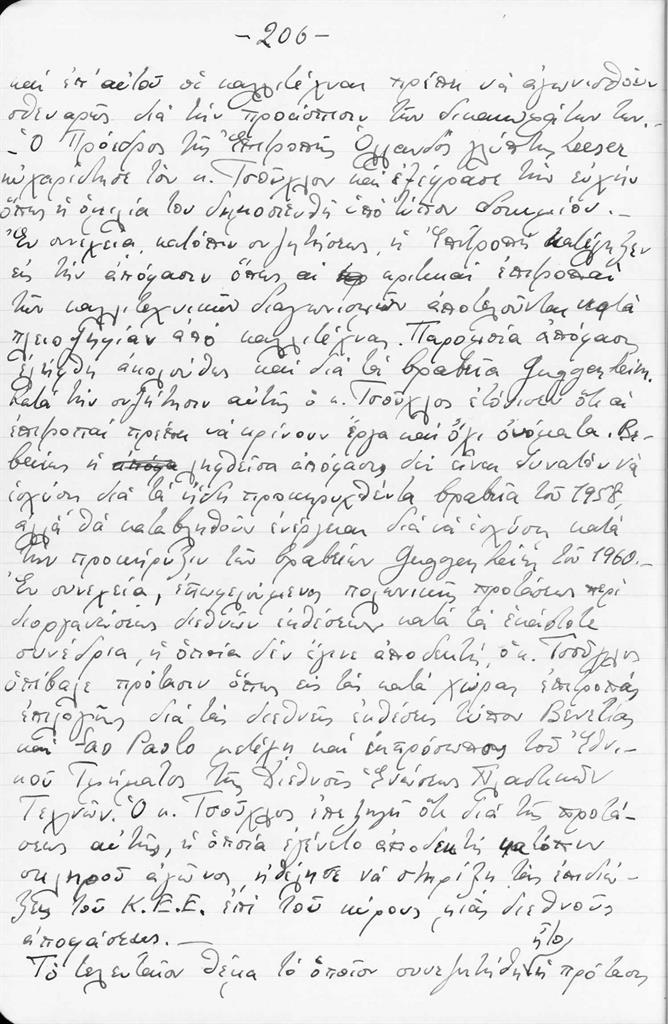 - 206 -
καί ἐπ' αὐτοῦ οἱ καλλιτέχναι πρέπει νά ἀγωνισθοῦν
σθεναρῶς διά τήν προάσπισιν τῶν δικαιωμάτων των.-
- Ὁ Πρόεδρος τῆς Ἐπιτροπῆς Ὁλλανδός γλύπτης Leeser
ηὐχαρίστησε τόν κ. Τσοῦχλον καί ἐξέφρασε τήν εὐχήν
ὅπως ἡ ὁμιλία του δημοσιευθῆ ὑπό τύπον δοκιμίου.-
Ἐν συνεχεία, κατόπιν συζητήσεως, ἡ Ἐπιτροπή κατέληξεν
εἰς τήν ἀπόφασιν ὅπως αἱ κριτικαί ἐπιτροπαί
τῶν καλλιτεχνικῶν διαγωνισμῶν ἀποτελοῦνται κατά
πλειοψηφίαν ἀπό καλλιτέχνας. Παρομοία ἀπόφασις
ἐλήφθη ἀκολούθως καί διά τά βραβεῖα Guggenheim.
Κατά τήν συζήτησιν αὐτήν ὁ κ. Τσοῦχλος ἐτόνισεν ὅτι αἱ
ἐπιτροπαί πρέπει νά κρίνουν ἔργα καί ὄχι ὀνόματα. Βε-
βαίως ἡ ληφθεῖσα ἀπόφασις δέν εἶναι δυνατόν νά
ἰσχύση διά τά ἤδη προκηρυχθέντα βραβεῖα τοῦ 1958,
ἀλλά θά καταβληθοῦν ἐνέργειαι διά νά ἰσχύση κατά
τήν προκήρυξιν τῶν βραβείων Guggenheim τοῦ 1960.-
Ἐν συνεχεία, ἐπωφελούμενος πολωνικῆς προτάσεως περί
διοργανώσεως διεθνῶν ἐκθέσεων κατά τά ἑκάστοτε
συνέδρια, ἡ ὁποία δέν ἔγινε ἀποδεκτή, ὁ κ. Τσοῦχλος
ὑπέβαλε πρότασιν ὅπως εἰς τάς κατά χώρας ἐπιτροπάς
ἐπιλογῆς διά τάς διεθνεῖς ἐκθέσεις τύπου Βενετίας
καί Sao Paolo μετέχη καί ἐκπρόσωπος τοῦ Ἐθνι-
κοῦ Τμήματος τῆς Διεθνοῦς Ἑνώσεως Πλαστικῶν
Τεχνῶν. Ὁ κ. Τσοῦχλος ἐπεξηγεῖ ὅτι διά τῆς προτά-
σεως αὐτῆς, ἡ ὁποία ἐγένετο ἀποδεκτή κατόπιν
σκληροῦ ἀγῶνος, ἠθέλησε νά στηρίξη τάς ἐπιδιώ-
ξεις τοῦ Κ.Ε.Ε. ἐπί τοῦ κύρους μιᾶς διεθνοῦς
ἀποφάσεως.-
Τό τελευταῖον θέμα τό ὁποῖον συνεζητήθη ἦτο ἡ πρότασις